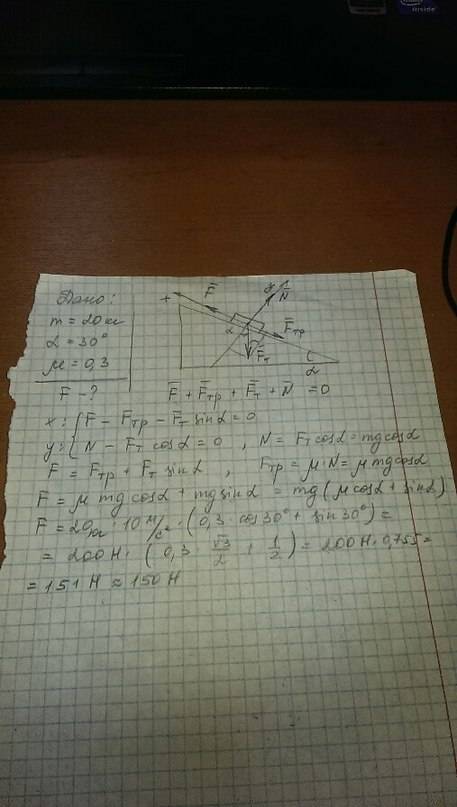 inside
Дано:
m = 20 кг
α = 30°
μ = 0,3
F - ?
x
F̄
y
N̄
F̄тр
α
F̄т
α
F̄ + F̄тр + F̄т + N̄ = 0
x: { F - Fтр - F̄т sinα = 0
y: { N - Fт cosα = 0 , N = Fт cosα = mg cosα
F = Fтр + Fт sinα , Fтр = μ·N = μ mg cosα
F = μ mg cosα + mg sinα = mg (μ cosα + sinα)
F = 20кг · 10 м/с² · (0,3 · cos30° + sin30°) =
= 200 Н · (0,3 · √3/2 + 1/2) = 200 Н · 0,755 =
= 151 Н ≈ 150 Н